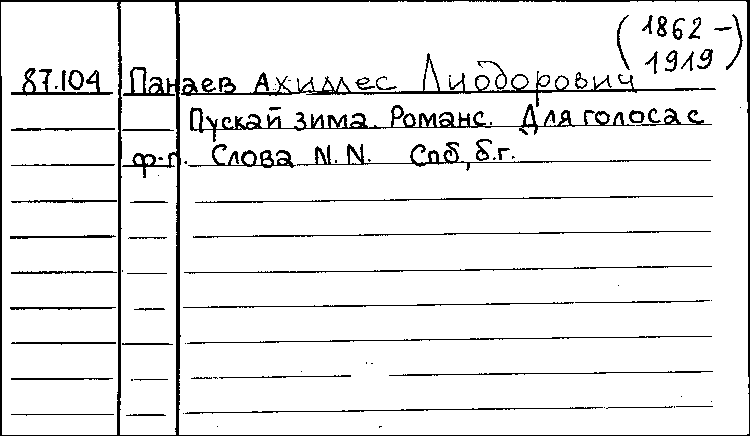 (1862 –
1919)
87.104 Панаев Ахиллес Лиодорович
Пускай зима. Романс. Для голоса с
ф-п. Слова N. N. Спб, б.г.